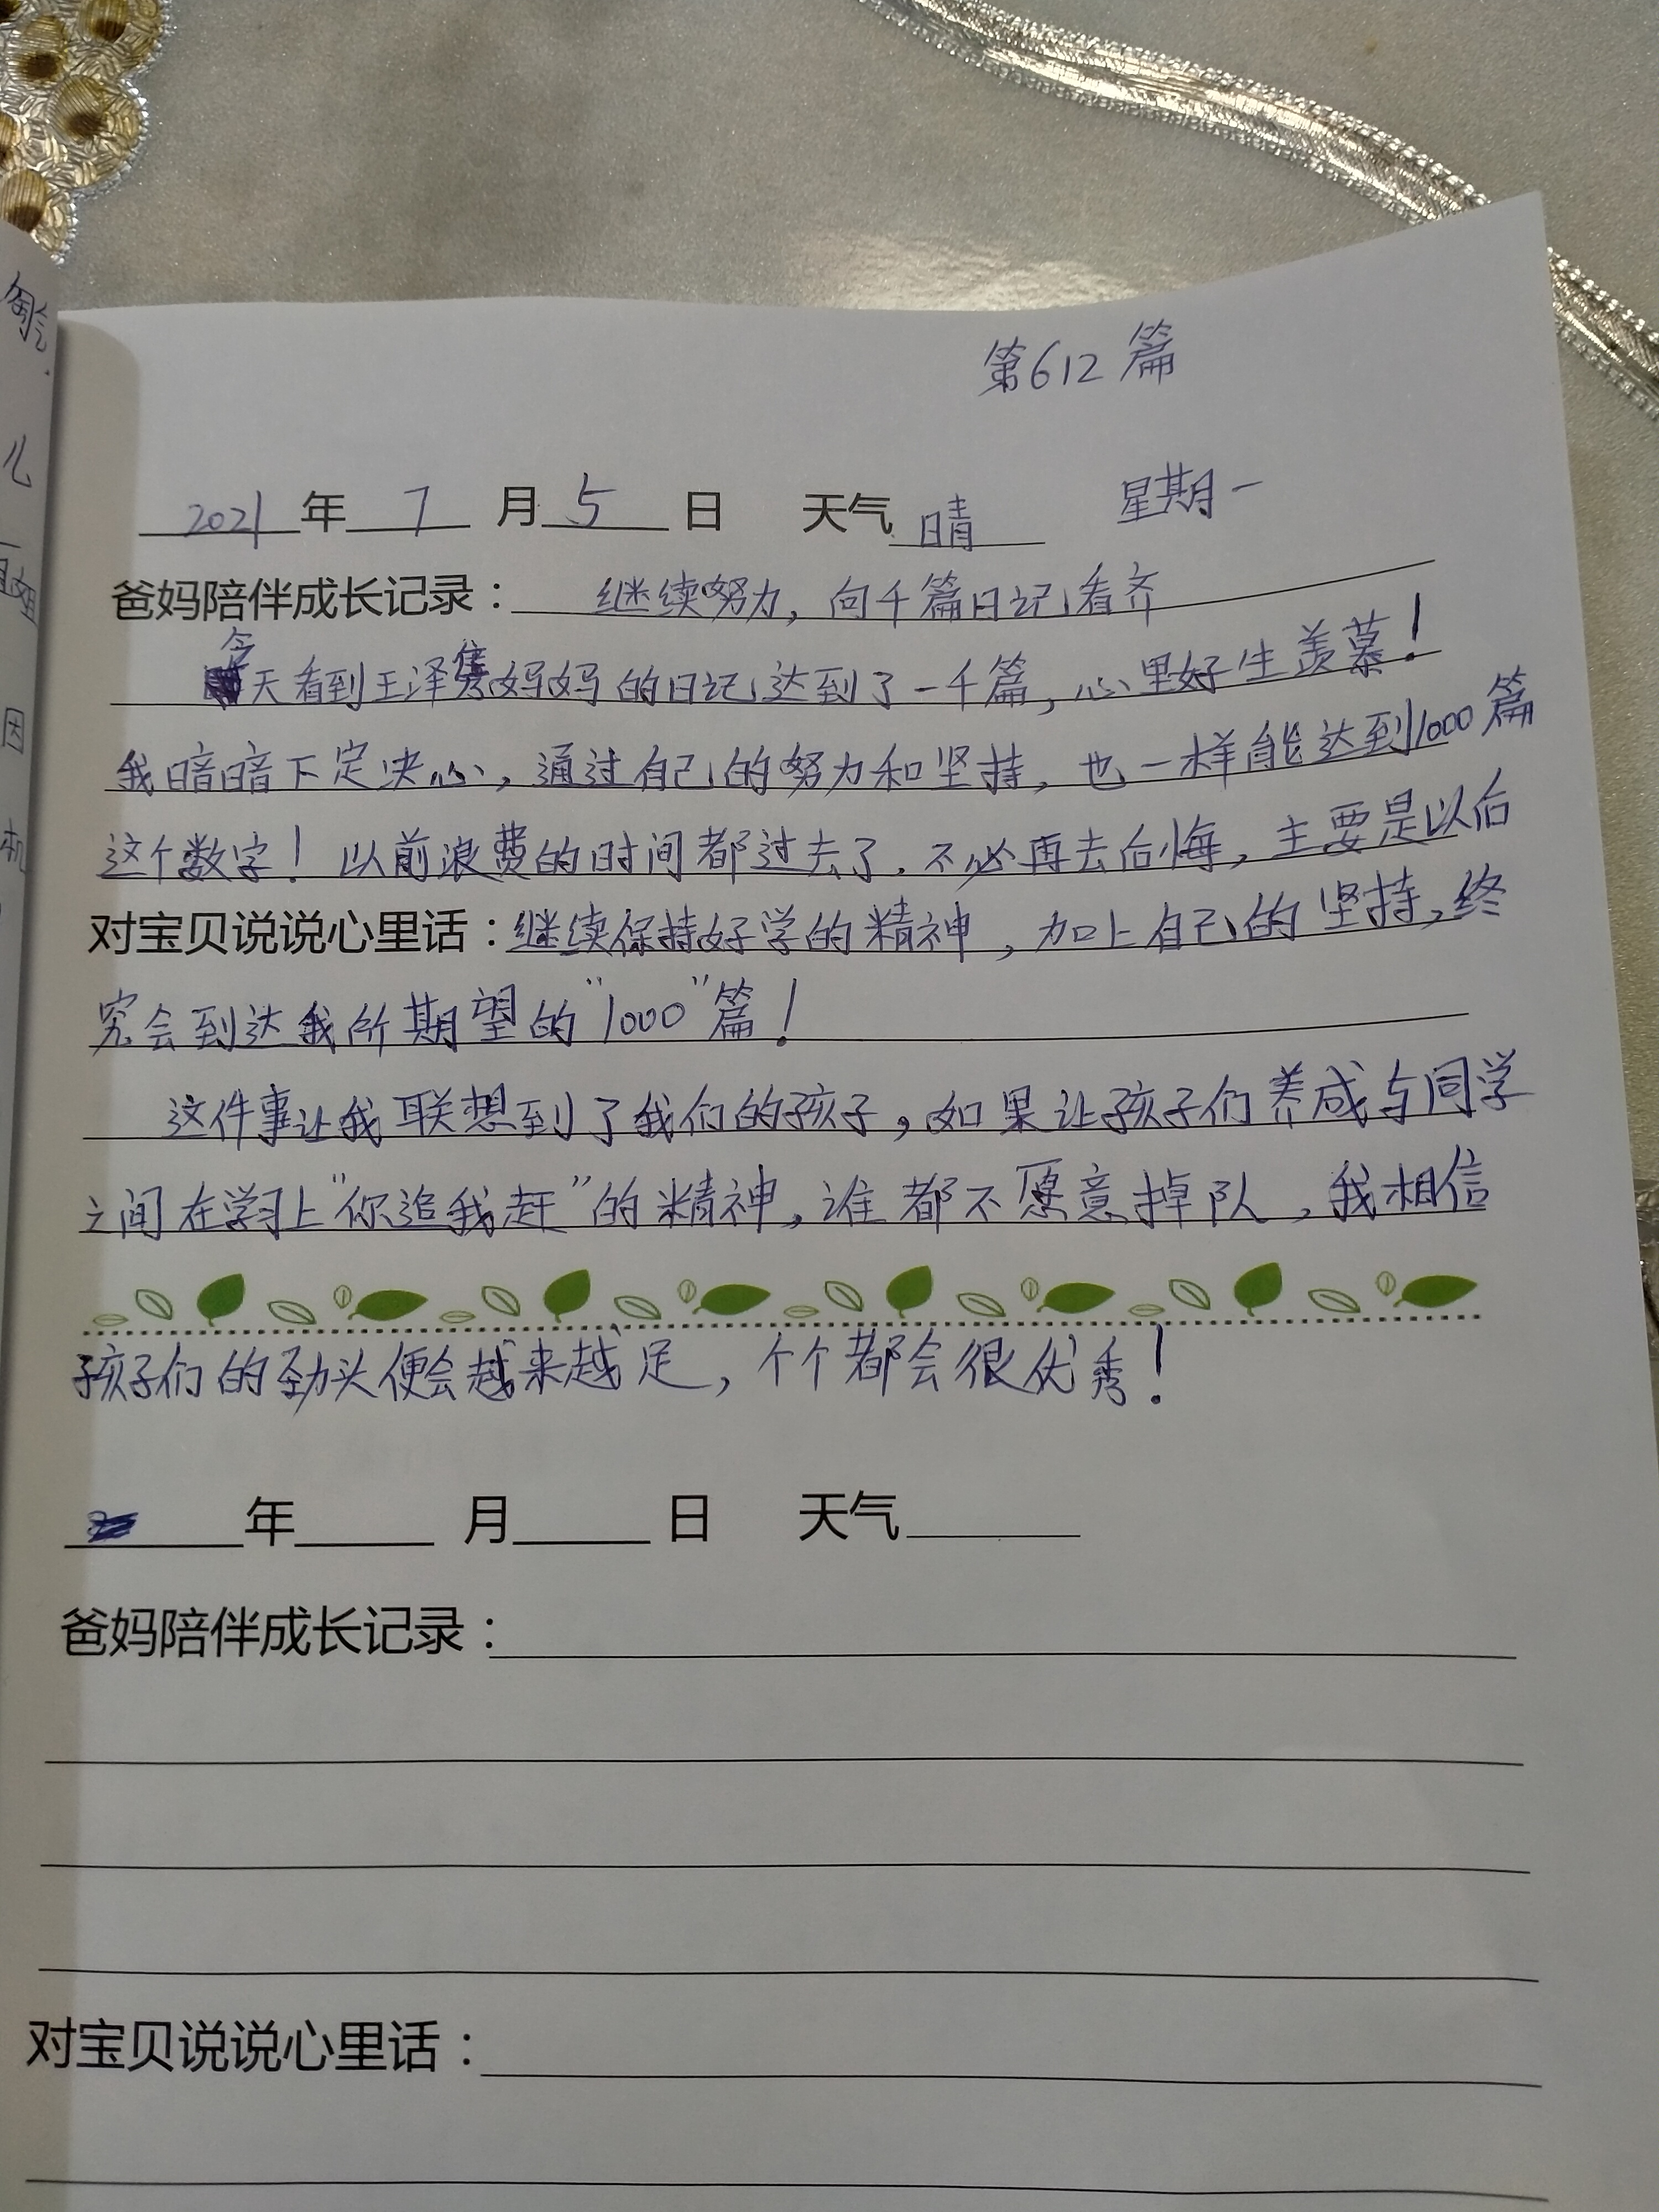 第612篇
2021年7月5日 天气晴 星期一
爸妈陪伴成长记录：继续努力，向千篇日记看齐
今天看到王泽隽妈妈的日记达到了一千篇，心里好生羡慕！
我暗暗下定决心，通过自己的努力和坚持，也一样能达到1000篇
这个数字！以前浪费的时间都过去了，不必再去后悔，主要是以后
对宝贝说说心里话：继续保持好学的精神，加上自己的坚持，终
究会到达我所期望的"1000"篇！
这件事让我联想到了我们的孩子，如果让孩子们养成与同学
之间在学习上"你追我赶"的精神，谁都不愿意掉队，我相信
孩子们的劲头便会越来越足，个个都会很优秀！
年 月 日 天气
爸妈陪伴成长记录：
对宝贝说说心里话：